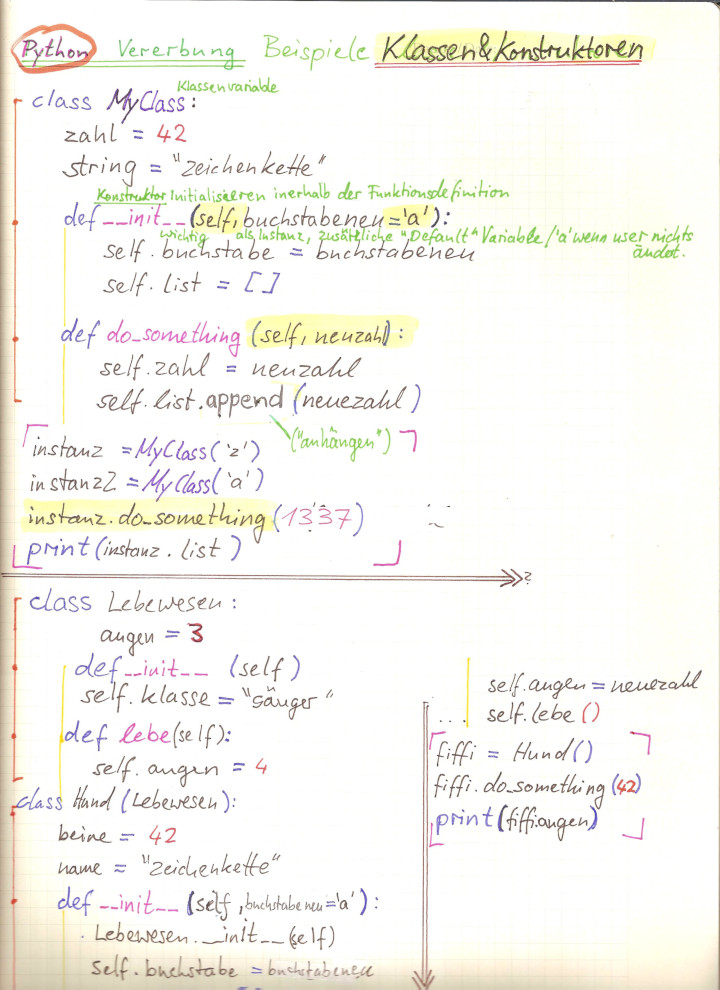 Python Vererbung Beispiele Klassen & Konstruktoren
Klassenvariable
class MyClass:
zahl = 42
string = "Zeichenkette"
Konstruktor Initialisieren inerhalb der Funktionsdefinition
def __init__(self, buchstabeneu='a'):
wichtig als Instanz, zusätzliche "Default" Variable / 'a' wenn user nichts
ändert.
self.buchstabe = buchstabeneu
self.list = []
def do_something (self, neuzahl):
self.zahl = neuzahl
self.list.append (neuezahl)
("anhängen")
instanz = MyClass('z')
instanz2 = MyClass('a')
instanz.do_something (1337)
print(instanz.list)
?
class Lebewesen:
augen = 3
def __init__ (self)
self.klasse = "Säuger"
def lebe(self):
self.augen = 4
class Hund (Lebewesen):
beine = 42
name = "Zeichenkette"
def __init__ (self, buchstabeneu='a'):
Lebewesen.__init__(self)
self.buchstabe = buchstabeneu
self.augen = neuezahl
... self.lebe ()
fiffi = Hund()
fiffi.do_something (42)
print(fiffi.augen)